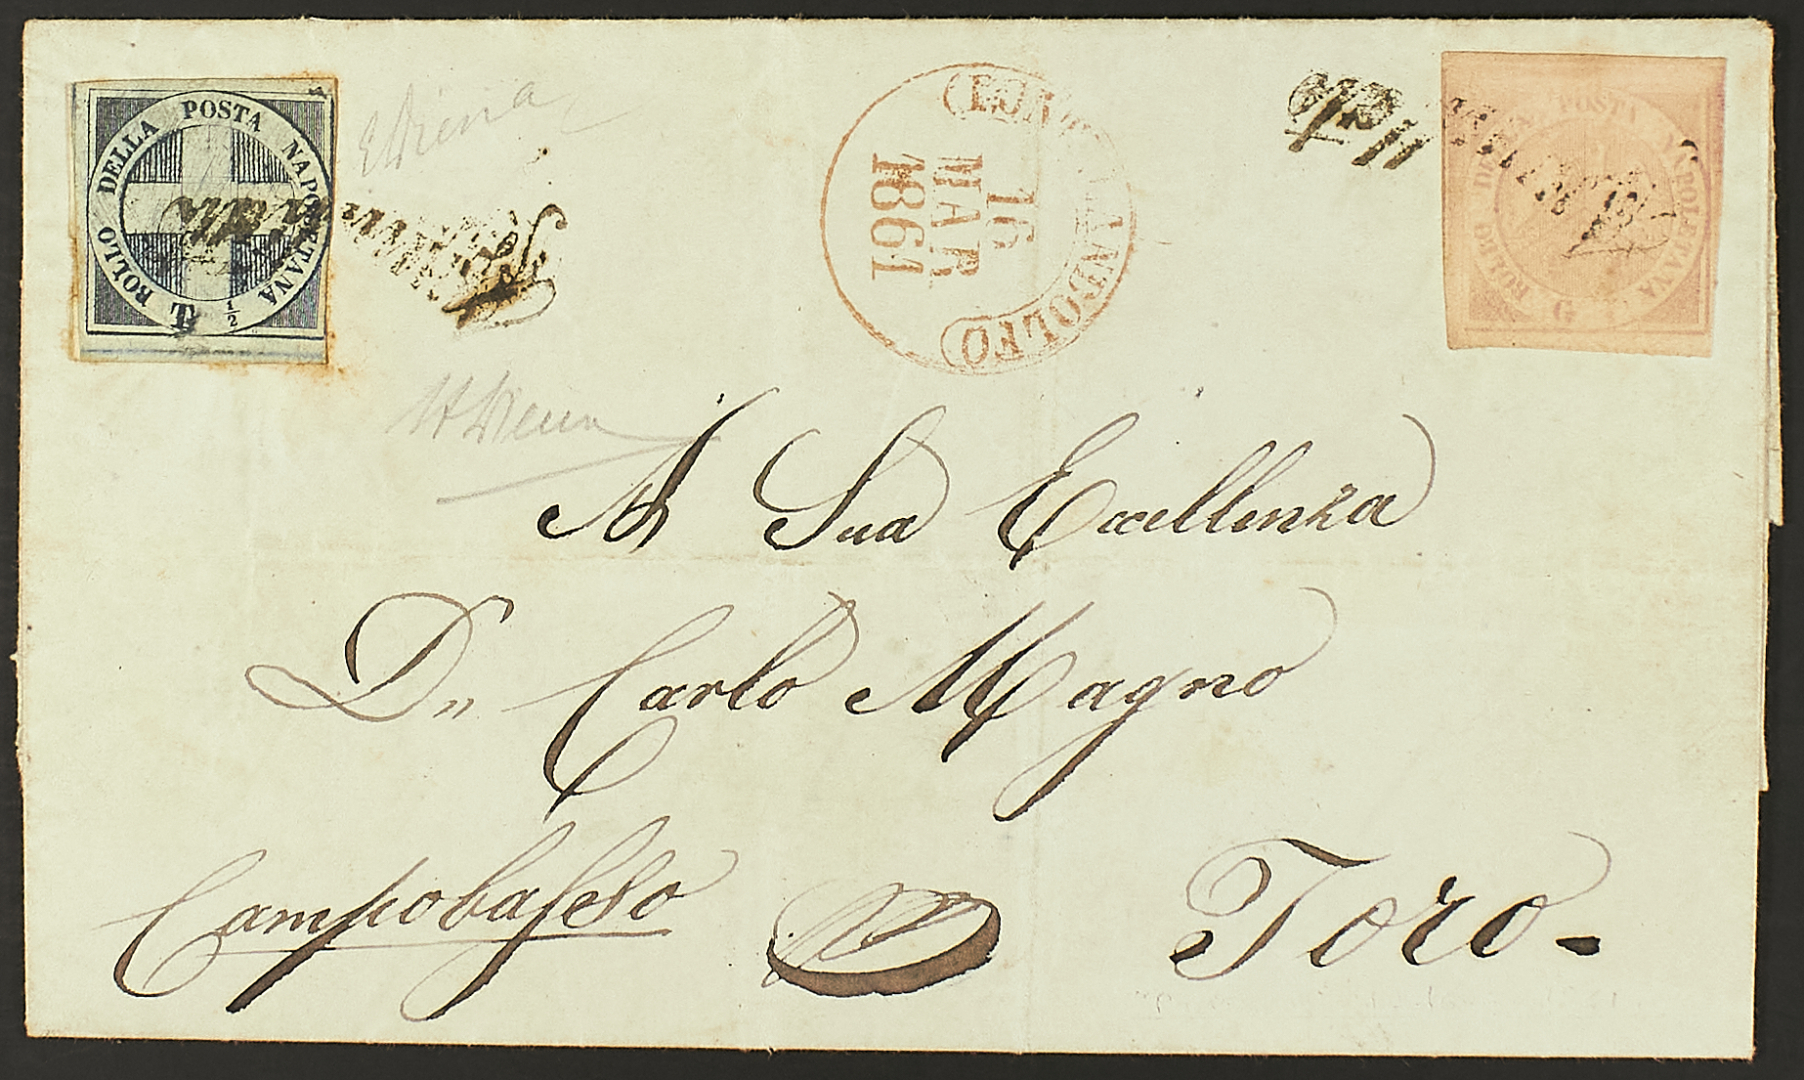 BOLLO DELLA POSTA NAPOLETANA
T 1/2
Annullato
EDiena
(PONTELANDOLFO)
16
MAR
1861
BOLLO DELLA POSTA NAPOLETANA
G
A Sua Eccellenza
Dn Carlo Magno
Campobasso
Toro-